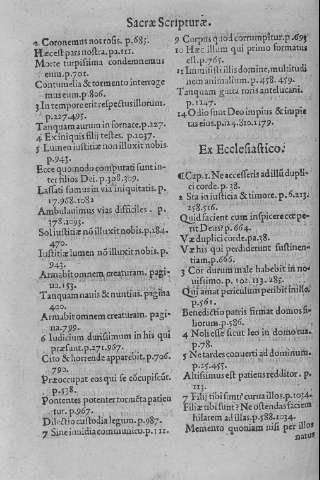 Sacræ Scripturæ.
2 Coronemus nos rosis. p.685.
Hæc est pars nostra, pa.111.
Morte turpissima condemnemus
eum.p.701.
Contumelia & tormento interroge
mus eum.p.806.
3 In tempore erit respectus illorum.
p.227.495.
Tanquam aurum in fornace.p.227.
4 Ex iniquis filij testes. p.1037.
5 Lumen iustitiæ non illuxit nobis.
p.943.
Ecce quomodo computati sunt in-
ter filios Dei. p.308.809.
Lassati sumus in via iniquitatis. p.
17.968.1082
Ambulauimus vias difficiles. p.
378.1093.
Sol iustitiæ nō illuxit nobis.p.284.
470.
Iustitiæ lumen nō illuxit nobis.p.
943.
Armabit omnem creaturam. pagi-
na.153.
Tanquam nauis & nuntius. pagina
400.
Armabit omnem creaturam. pagi-
na.799.
6 Iudicium durissimum in his qui
præsunt.p.271.967.
Cito & horrende apparebit. p.706.
790.
Præoccupat eos qui se cōcupiscūt.
p.538.
Potentes potenter tormēta patien
tur. p.967.
Dilectio custodia legum. p.987.
7 Sine inuidia communico.p.111.
9 Corpus quod corrumpitur.p.693
10 Hæc illum qui primo formatus
est.p.765.
11 Immisisti illis domine, multitudi
nem animalium.p.458.459.
Tanquam gutta roris antelucani.
p.1247.
14 Odio sunt Deo impius & impie
tas eius.p.124.810.1179.
Ex Ecclesiastico.
¶Cap.1. Ne accesseris ad illū dupli-
ci corde.p.38.
2 Sta in iustitia & timore. p.6.213.
258.516.
Quid facient cum inspicere cœpe-
rit Deus? p.664.
Væ duplici corde.pa.38.
Væ his qui perdiderunt sustinen-
tiam.p.666.
3 Cor durum male habebit in no-
uissimo. p. 102.113.285.
Qui amat periculum peribit in illo.
p.561.
Benedictio patris firmat domos fi-
liorum.p.586.
4 Noli esse sicut leo in domo tua.
p.78.
5 Ne tardes conuerti ad dominum.
p.25.455.
Altissimus est patiens redditor. p.
113.
7 Filij tibi sunt? cura illos.p.1034.
Filiæ tibi sunt? Ne ostendas faciem
hilarem ad illas.p.588.1034.
Memento quoniam nisi per illos
natus